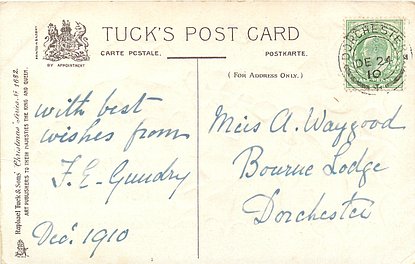 TUCK'S POST CARD
CARTE POSTALE.
POSTKARTE.
BY APPOINTMENT
(FOR ADDRESS ONLY.)
DORCHESTER
DE 24
10
Raphael Tuck & Sons' "Christmas" Series Nº 1682.
ART PUBLISHERS TO THEIR MAJESTIES THE KING AND QUEEN.
with best
wishes from
F. E. Gundry
Dec. 1910
Miss A. Waygood
Bourne Lodge
Dorchester